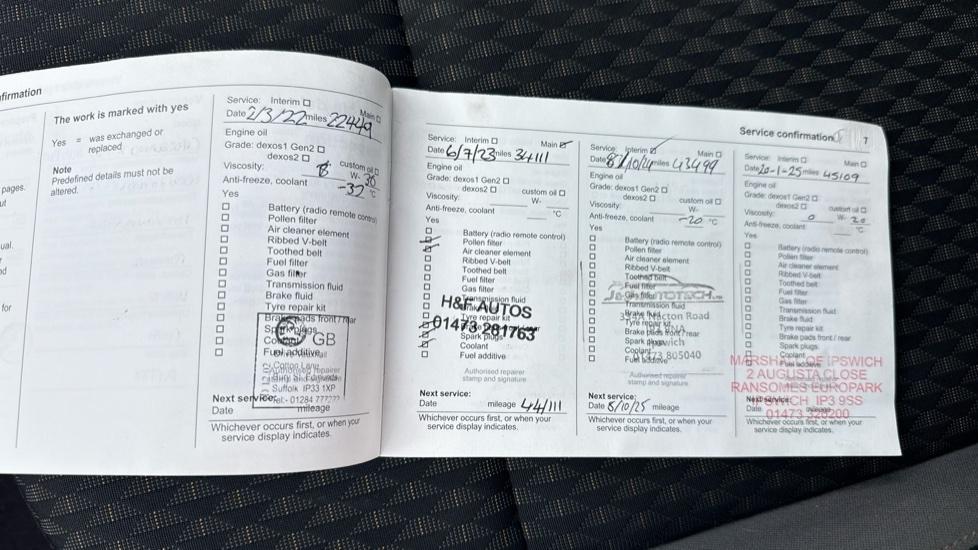 firmation
The work is marked with yes
Yes = was exchanged or
replaced
Note
Predefined details must not be
altered.
pages.
ut
ual.
nd
for
Service: Interim ☐ Main ☐
Date 2/3/22 miles 22449
Engine oil
Grade: dexos1 Gen2 ☐
dexos2 ☐ custom oil ☐
Viscosity: W- 30
Anti-freeze, coolant -32 °C
Yes
☐ Battery (radio remote control)
☐ Pollen filter
☐ Air cleaner element
☐ Ribbed V-belt
☐ Toothed belt
☐ Fuel filter
☐ Gas filter
☐ Transmission fluid
☐ Brake fluid
☐ Tyre repair kit
☐ Brake pads front / rear
☐ Spark plugs
☐ Coolant
☐ Fuel additive
GB
Cotton Lane
Bury St. Edmunds
Suffolk IP33 1XP
Tel:- 01284
Next service:
Date mileage
Whichever occurs first, or when your
service display indicates.
Service: Interim ☐ Main ☑
Date 6/7/23 miles 34111
Engine oil
Grade: dexos1 Gen2 ☐
dexos2 ☐ custom oil ☐
Viscosity: W-
Anti-freeze, coolant °C
Yes
Battery (radio remote control)
Pollen filter
Air cleaner element
Ribbed V-belt
Toothed belt
Fuel filter
Gas filter
Transmission fluid
H&F AUTOS
Tyre repair kit
01473 281763
Spark plugs
Coolant
Fuel additive
Authorised repairer
stamp and signature
Next service:
Date mileage 44111
Whichever occurs first, or when your
service display indicates.
Service confirmation 7
Service: Interim ☑ Main ☐
Date 8/10/24 miles 43499
Engine oil
Grade: dexos1 Gen2 ☐
dexos2 ☐ custom oil ☐
Viscosity: W-
Anti-freeze, coolant -20 °C
Yes
Battery (radio remote control)
Pollen filter
Air cleaner element
Ribbed V-belt
Toothed belt
Fuel filter
Gas filter
Transmission fluid
Brake fluid
Nacton Road
Tyre repair kit
Brake pads front / rear
Spark plugs
Ipswich
Coolant
01473 805040
Fuel additive
Authorised repairer
stamp and signature
Next service:
Date 8/10/25 mileage
Whichever occurs first, or when your
service display indicates.
Service: Interim ☐ Main ☐
Date 20-1-25 miles 45109
Engine oil
Grade: dexos1 Gen2 ☐
dexos2 ☐ custom oil ☐
Viscosity: 0 W- 20
Anti-freeze, coolant °C
Yes
Battery (radio remote control)
Pollen filter
Air cleaner element
Ribbed V-belt
Toothed belt
Fuel filter
Gas filter
Transmission fluid
Brake fluid
Tyre repair kit
Brake pads front / rear
Spark plugs
Coolant
Fuel additive
MARSHALL OF IPSWICH
2 AUGUSTA CLOSE
RANSOMES EUROPARK
IPSWICH IP3 9SS
01473
Next service:
Date mileage
Whichever occurs first, or when your
service display indicates.